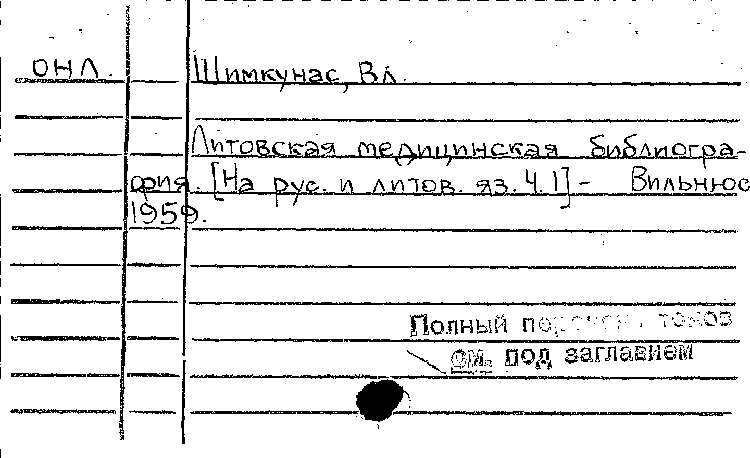 ОНЛ. Шимкунас, Вл.
Литовская медицинская библиогра-
фия. [На рус. и литов. яз. Ч. 1] - Вильнюс
1959.
Полный перечень томов
см. под заглавием